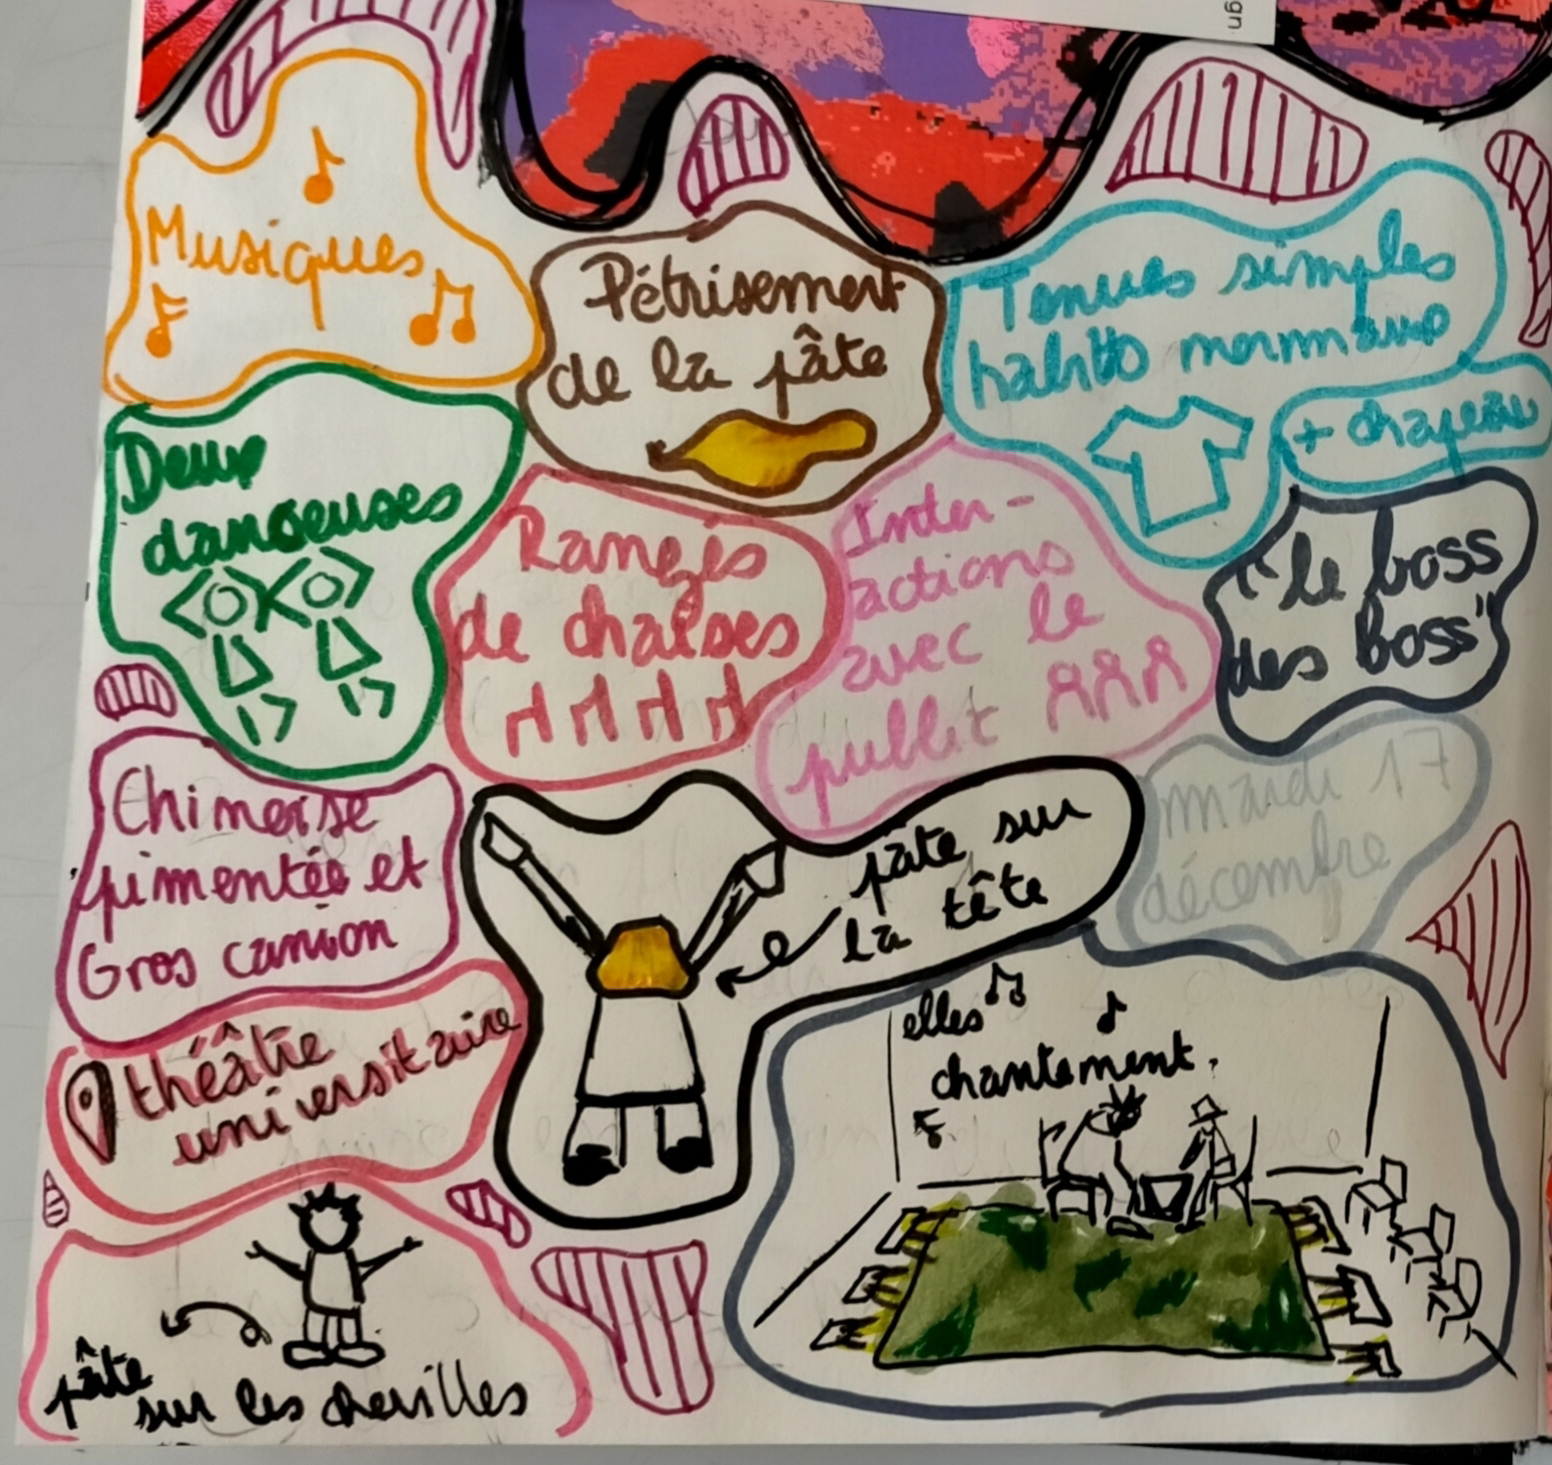 ign
Musiques
Pétrisement
de la pâte
Tenues simples
habits normaux
+ chapeau
Deux
danseuses
Rangés
de chaises
Inter-
actions
avec le
public
"le boss
des boss"
Chinoise
pimentée et
Gros camion
pâte sur
la tête
mardi 17
décembre
théâtre
universitaire
elles
chantement.
pâte
sur les chevilles